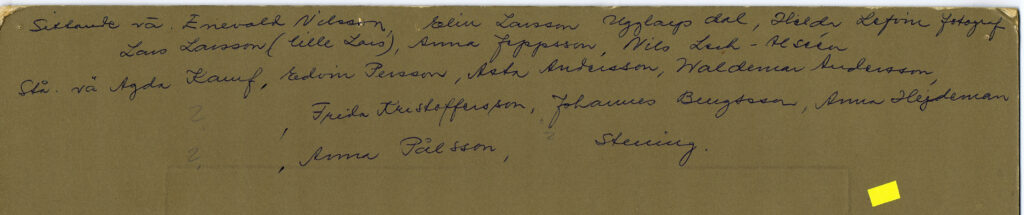 Sittande vä. Enevald Nilsson, Elin Larsson Ugglarps dal, Helda Lefvin fotograf
Lars Larsson (lille Lars), Anna Jeppsson, Nils Lech-Alsén
Stå. vä Agda Kamf, Edvin Persson, Asta Andersson, Waldemar Andersson,
?, Frida Kristoffersson, Johannes Bengtsson, Anna Hejdeman
?, Anna Pålsson, ? Stening.